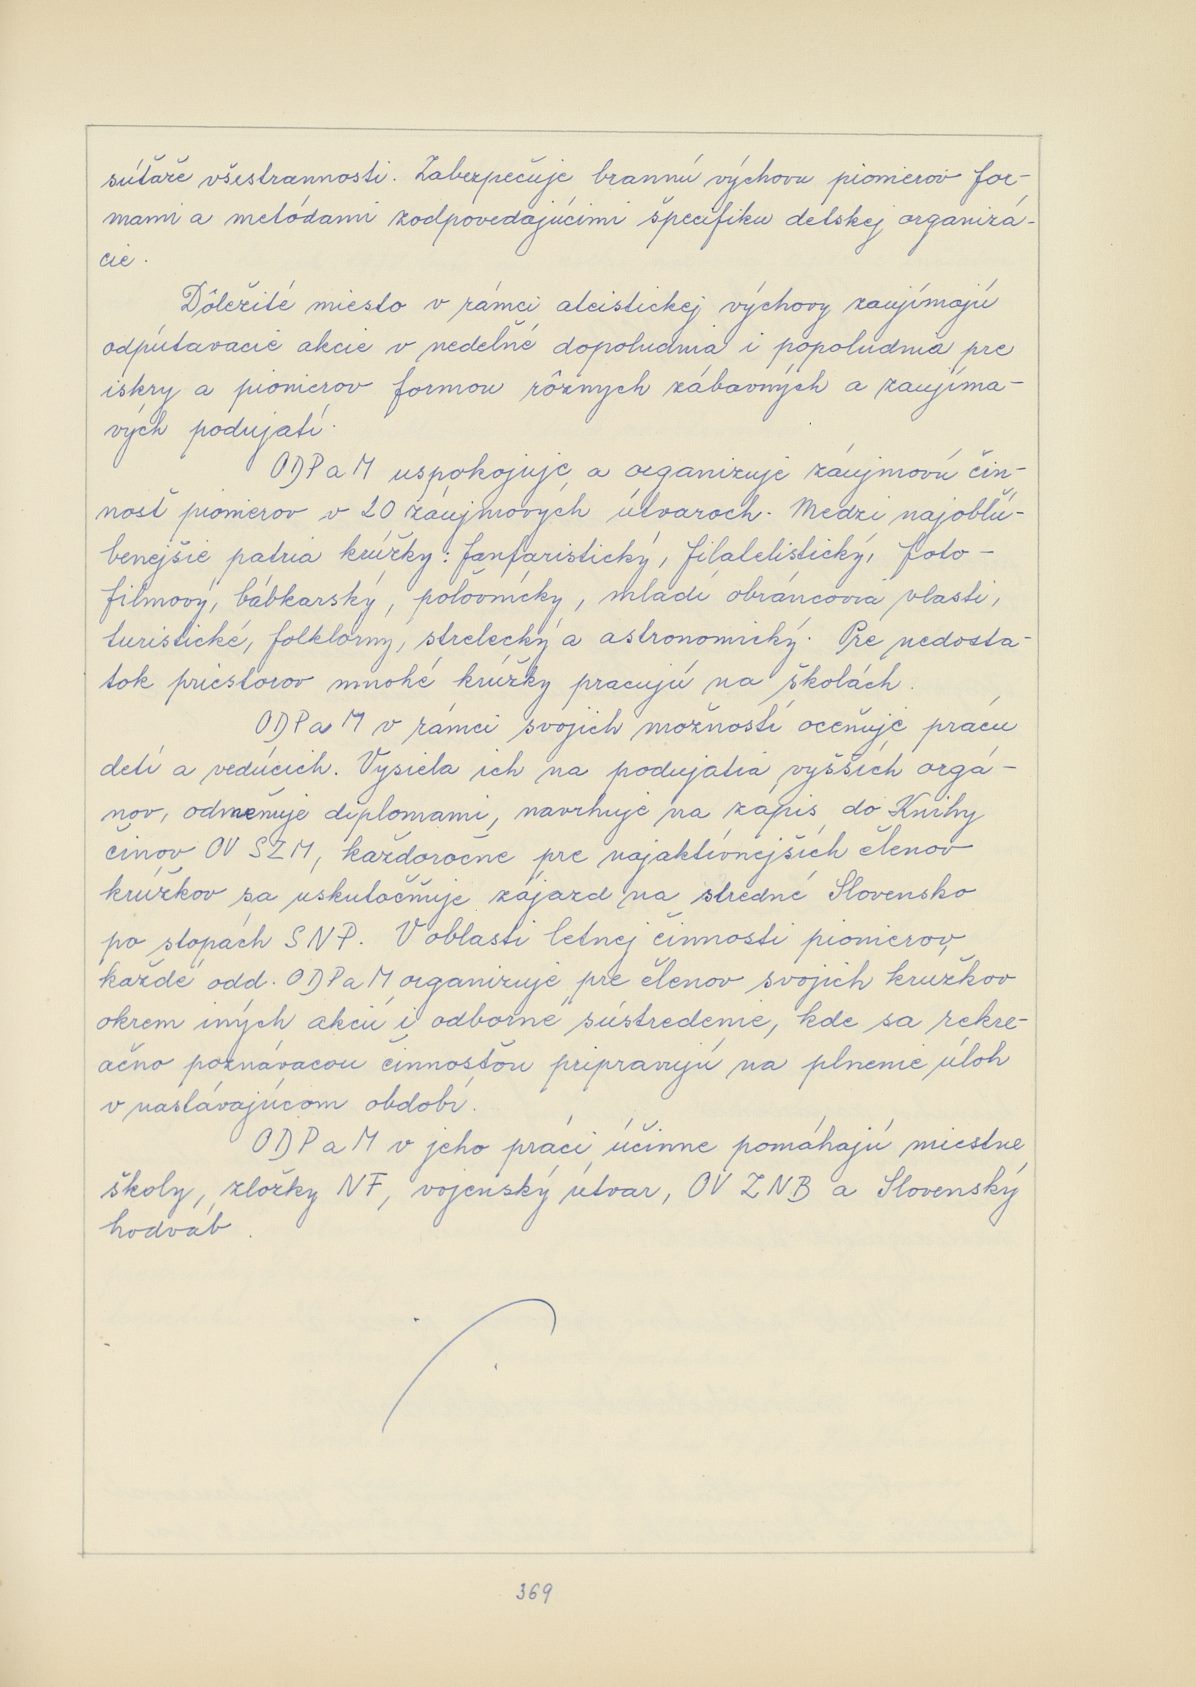 súťaže všestrannosti. Zabezpečuje brannú výchovu pionierov for-
mami a metódami zodpovedajúcimi špecifiku detskej organizá-
cie.
Dôležité miesto v rámci ateistickej výchovy zaujímajú
odpútavacie akcie v nedeľné dopoludnia i popoludnia pre
iskry a pionierov formou rôznych zábavných a zaujíma-
vých podujatí.
ODPaM uspokojuje a organizuje záujmovú čin-
nosť pionierov v 20 záujmových útvaroch. Medzi najobľú-
benejšie patria krúžky: fanfaristický, filatelistický, foto-
filmový, bábkarský, poľovnícky, mladí obráncovia vlasti,
turistické, folklórny, strelecký a astronomický. Pre nedosta-
tok priestorov mnohé krúžky pracujú na školách.
ODPaM v rámci svojich možností oceňuje prácu
detí a vedúcich. Vysiela ich na podujatia vyšších orgá-
nov, odmeňuje diplomami, navrhuje na zápis do Knihy
činov OV SZM, každoročne pre najaktívnejších členov
krúžkov sa uskutočňuje zájazd na stredné Slovensko
po stopách SNP. V oblasti letnej činnosti pionierov,
každé odd. ODPaM organizuje pre členov svojich krúžkov
okrem iných akcií i odborné sústredenie, kde sa rekre-
ačno poznávacou činnosťou pripravujú na plnenie úloh
v nastávajúcom období.
ODPaM v jeho práci účinne pomáhajú miestne
školy, zložky NF, vojenský útvar, OV ZNB a Slovenský
hodváb.
369